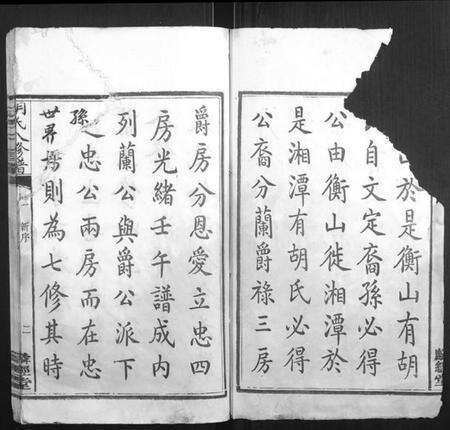 山於是衡山有胡
自文定裔孫必得
公由衡山徙湘潭於
是湘潭有胡氏必得
公裔分蘭爵祿三房
爵房分恩愛立忠四
房光緒壬午譜成內
列蘭公與爵公派下
孫忠公兩房而在忠
世界則為七修其時
氏八修譜
新序
二
經堂